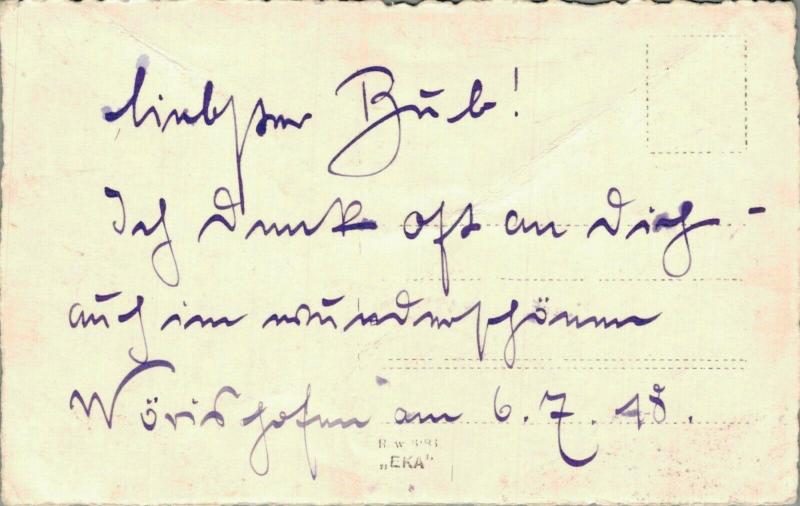 liebster Bub!
Ich denk oft an Dich -
auch im wunderschönen
Wörishofen am 6.7.48.
„EKA"